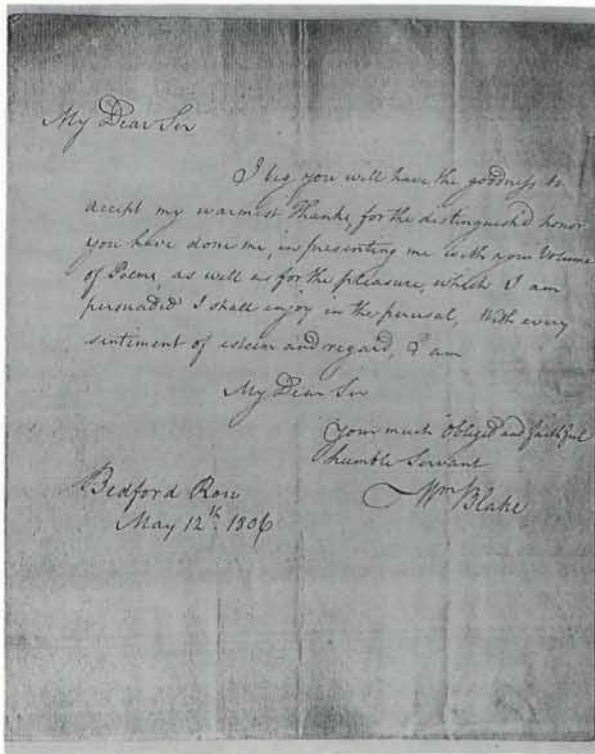 My Dear Sir
I beg you will have the goodness to
accept my warmest Thanks, for the distinguish'd honor
you have done me, in presenting me with your Volume
of Poems, as well as for the pleasure, which I am
persuaded I shall enjoy in the perusal, With every
sentiment of esteem and regard, I am
My Dear Sir
Your much Obliged and faithful
humble Servant
Wm Blake
Bedford Row
May 12th. 1806